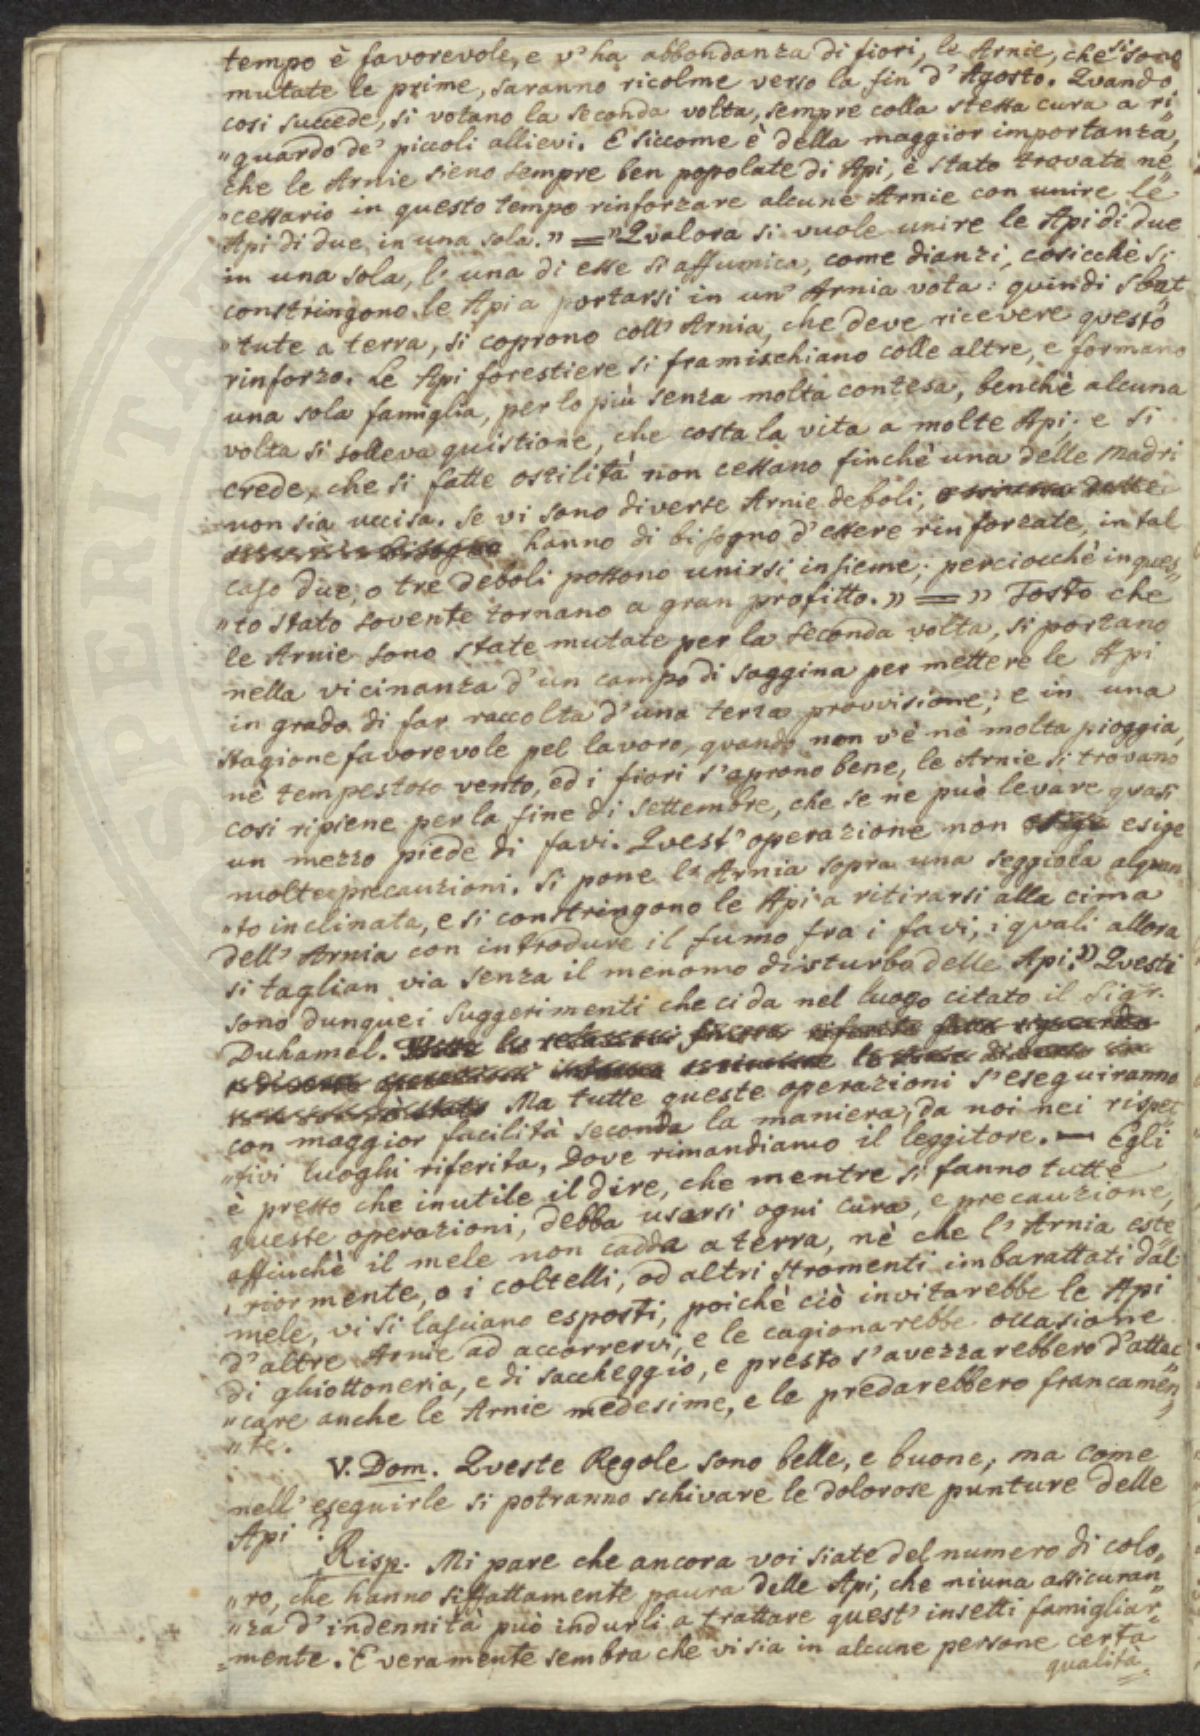 tempo è favorevole, e v'ha abbondanza di fiori, le Arnie, che si sono
mutate le prime, saranno ricolme verso la fin d'Agosto. Quando
così succede, si votano la seconda volta, sempre colla stessa cura a ri„
„guardo de' piccoli allievi. E siccome è della maggior importanza,
che le Arnie sieno sempre ben popolate di Api, è stato trovato ne„
„cessario in questo tempo rinforzare alcune Arnie con unire le
Api di due in una sola.” = ”Qualora si vuole unire le Api di due
in una sola, l'una di esse si affumica, come dianzi, cosicchè si
constringono le Api a portarsi in un' Arnia vota: quindi sbat„
„tute a terra, si coprono coll' Arnia, che deve ricevere questo
rinforzo. Le Api forestiere si framischiano colle altre, e formano
una sola famiglia, per lo più senza molta contesa, benchè alcuna
volta si solleva quistione, che costa la vita a molte Api; e si
crede, che si fatte ostilità non cessano finchè una delle madri
non sia uccisa. Se vi sono diverse Arnie deboli,
hanno di bisogno d'essere rinforzate, in tal
caso due, o tre deboli possono unirsi insieme; perciocchè in ques„
„to stato sovente tornano a gran profitto.” = ” Tosto che
le Arnie sono state mutate per la seconda volta, si portano
nella vicinanza d'un campo di saggina per mettere le Api
in grado di far raccolta d'una terza provvisione; e in una
stagione favorevole pel lavoro, quando non v'è nè molta pioggia,
nè tempestoso vento, ed i fiori s'aprono bene, le Arnie si trovano
così ripiene per la fine di settembre, che se ne può levare quasi
un mezzo piede di favi. Quest' operazione non esige
molte precauzioni. Si pone l'Arnia sopra una seggiola alquan„
„to inclinata, e si constringono le Api a ritirarsi alla cima
dell' Arnia con introdure il fumo fra i favi, i quali allora
si taglian via senza il menomo disturbo delle Api.” Questi
sono dunque i suggerimenti che ci da nel luogo citato il Sigr.
Duhamel.
Ma tutte queste operazioni s'eseguiranno
con maggior facilità seconda la maniera, da noi nei rispet„
„tivi luoghi riferita, Dove rimandiamo il leggitore. — Egli
è presso che inutile il dire, che mentre si fanno tutte
queste operazioni, debba usarsi ogni cura, e precauzione,
affinchè il mele non cadda a terra, nè che l'Arnia este„
„riormente, o i coltelli, od altri stromenti imbarattati dal
mele, vi si lasciano esposti, poichè ciò invitarebbe le Api
d'altre Arnie ad accorrervi, e le cagionarebbe occasione
di ghiottoneria, e di saccheggio, e presto s'avezzarebbero d'attac„
„care anche le Arnie medesime, e le predarebbero francamen„
„te.
V. Dom. Queste Regole sono belle, e buone, ma come
nell' eseguirle si potranno schivare le dolorose punture delle
Api?
Risp. Mi pare che ancora voi siate del numero di colo„
„ro, che hanno siffattamente paura delle Api, che niuna assicuran„
„za d'indennità può indurli a trattare quest' insetti famigliar„
„mente. E veramente sembra che vi sia in alcune persone certa
qualità